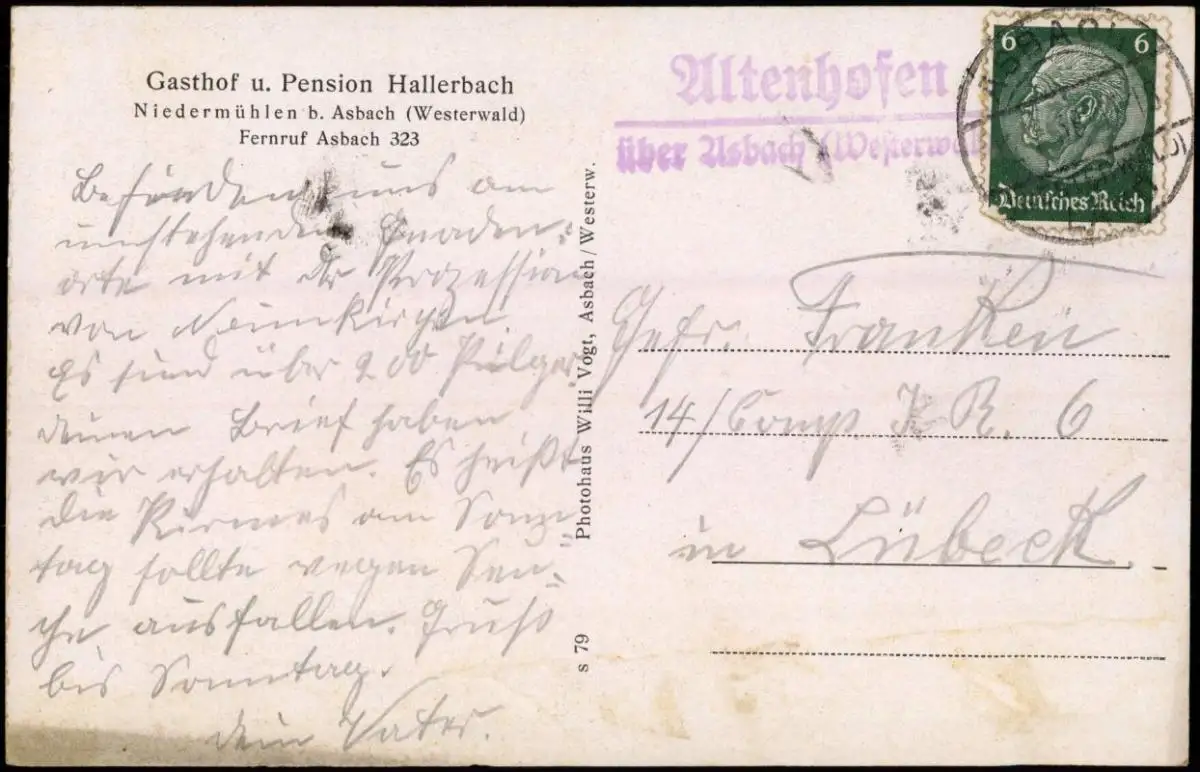 Gasthof u. Pension Hallerbach
Niedermühlen b. Asbach (Westerwald)
Fernruf Asbach 323
Befinden uns am
umstehenden Gnaden-
orte mit der Prozession
von Neunkirchen.
Es sind über 200 Pilger.
deinen Brief haben
wir erhalten. Es heißt
die Kirmes am Sonn-
tag sollte wegen Seu-
che ausfallen. Gruß
bis Sonntag.
dein Vater.
s 79 Photohaus Willi Vogt, Asbach/Westerw.
Altenhofen
über Asbach (Westerwald
6 6
Deutsches Reich
ASBACH
Gefr. Franken
14/Comp. I. R. 6
in Lübeck.